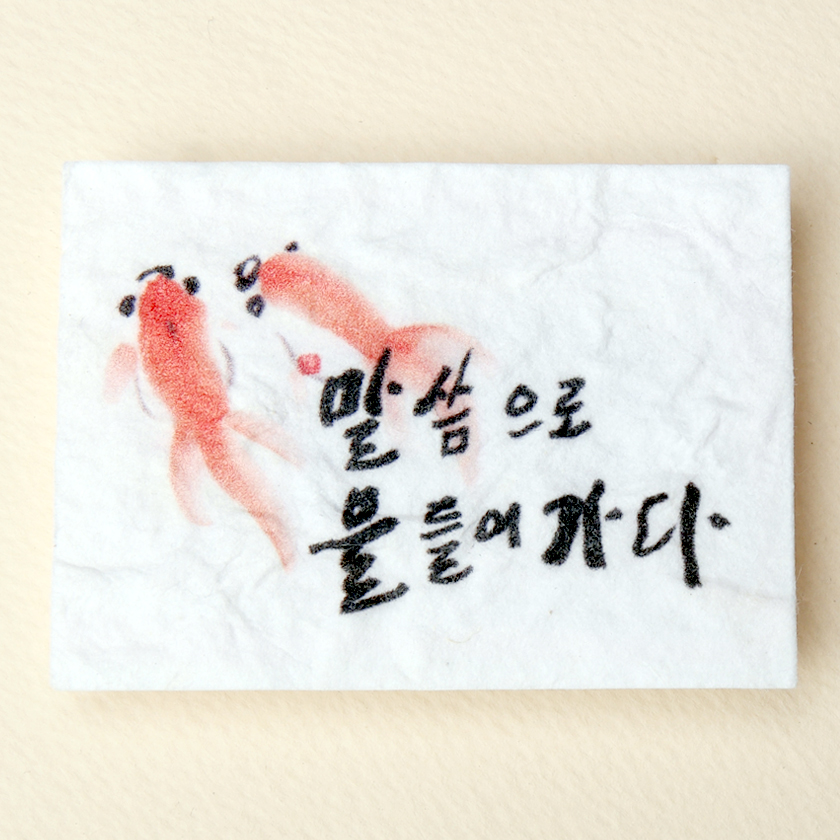 말씀으로
물들어가다